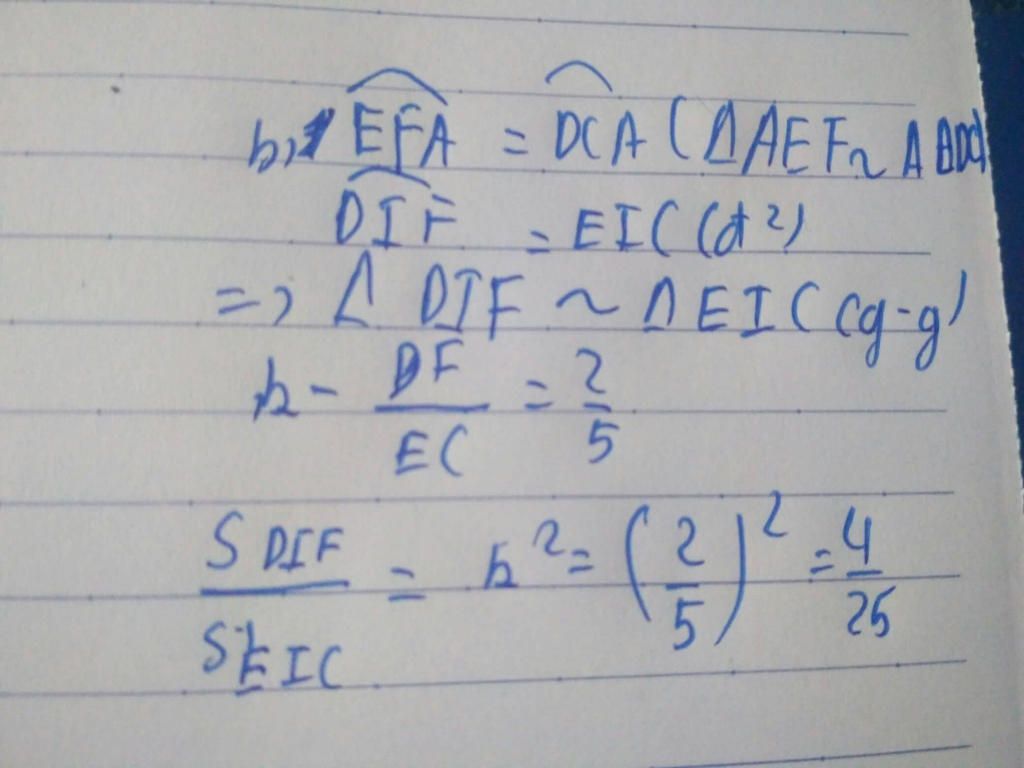 b, EFA = DCA (Δ AEF ~ Δ ADC)
DIF = EIC (đ²)
=> Δ DIF ~ Δ EIC (g-g)
k = DF/EC = 2/5
S DIF / S EIC = k² = (2/5)² = 4/25